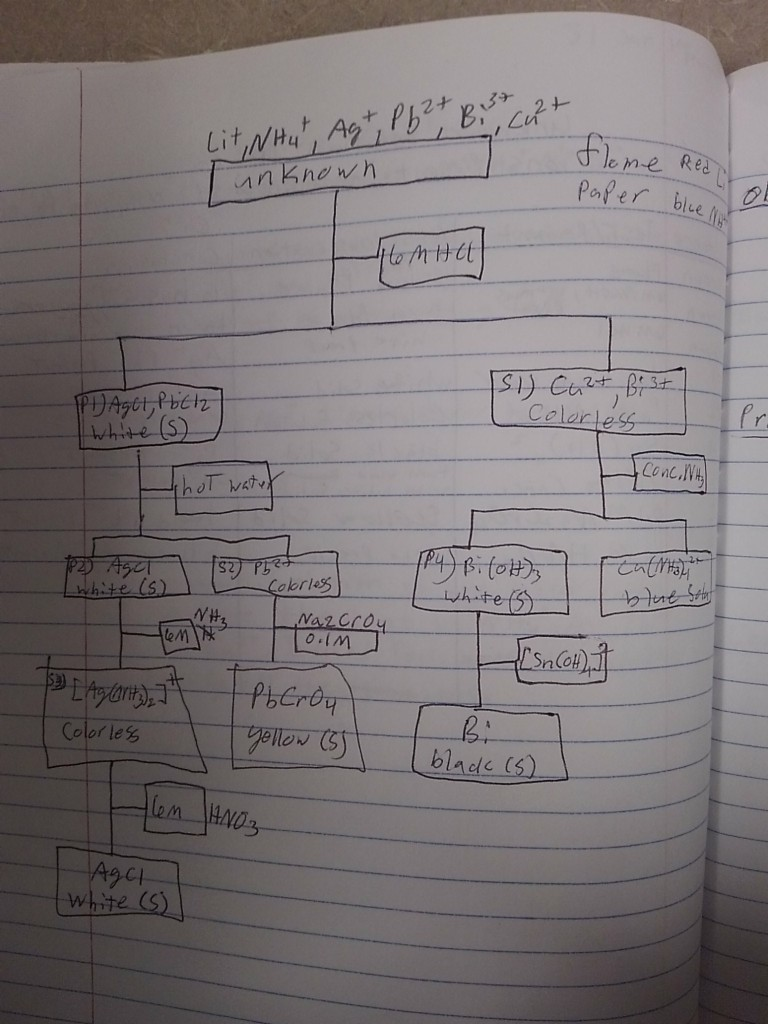 Li+, NH4+, Ag+, Pb2+, Bi3+, Cu2+
unknown
flame Red Li
Paper blue NH
6M HCl
P1) AgCl, PbCl2
white (S)
S1) Cu2+, Bi3+
Colorless
hot water
Conc. NH3
P2) AgCl
white (S)
S2) Pb2+
colorless
P4) Bi(OH)3
white (S)
Cu(NH3)4 2+
blue
6M NH3
Na2CrO4
0.1M
[Sn(OH)4]
[Ag(NH3)2]+
Colorless
PbCrO4
yellow (S)
Bi
black (S)
6M HNO3
AgCl
white (S)
Pr